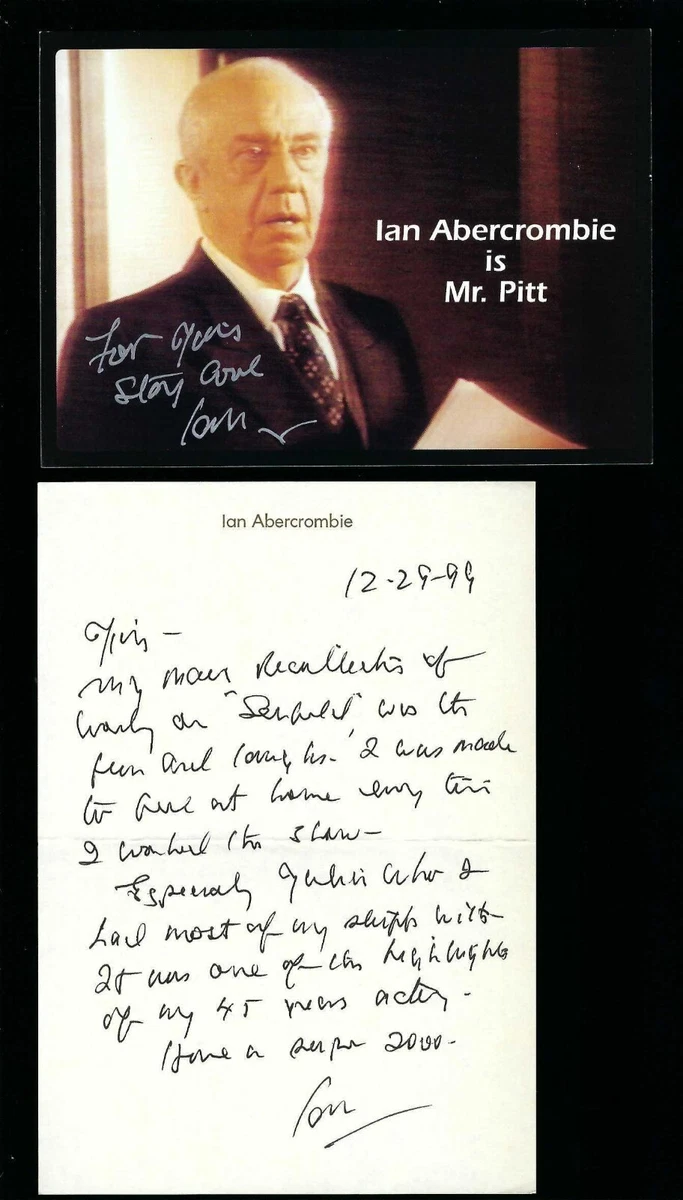 Ian Abercrombie
is
Mr. Pitt
For
Stay cool
Ian
Ian Abercrombie
12-29-99
My main recollections of
working on "Seinfeld" was the
fun and laughs. I was made
to feel at home every time
I worked the show-
Especially Julia who I
had most of my with-
It was one of the highlights
of my 45 years acting.
Have a super 2000-
Ian